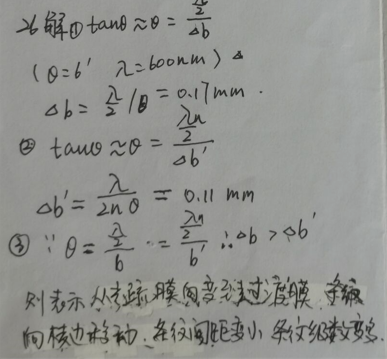 26 解① tanθ ≈ θ = (λ/2)/Δb
(θ=6′ λ=600nm)
Δb = λ/2 /θ = 0.17mm.
② tanθ ≈ θ = (λn/2)/Δb′
Δb′ = λ/(2nθ) = 0.11 mm
③ ∵ θ = (λ/2)/b = (λn/2)/b′ ∴ Δb > Δb′
则表示从 膜 变到过渡膜 条纹
向棱边移动. 条纹间距变小 条纹级数变多.